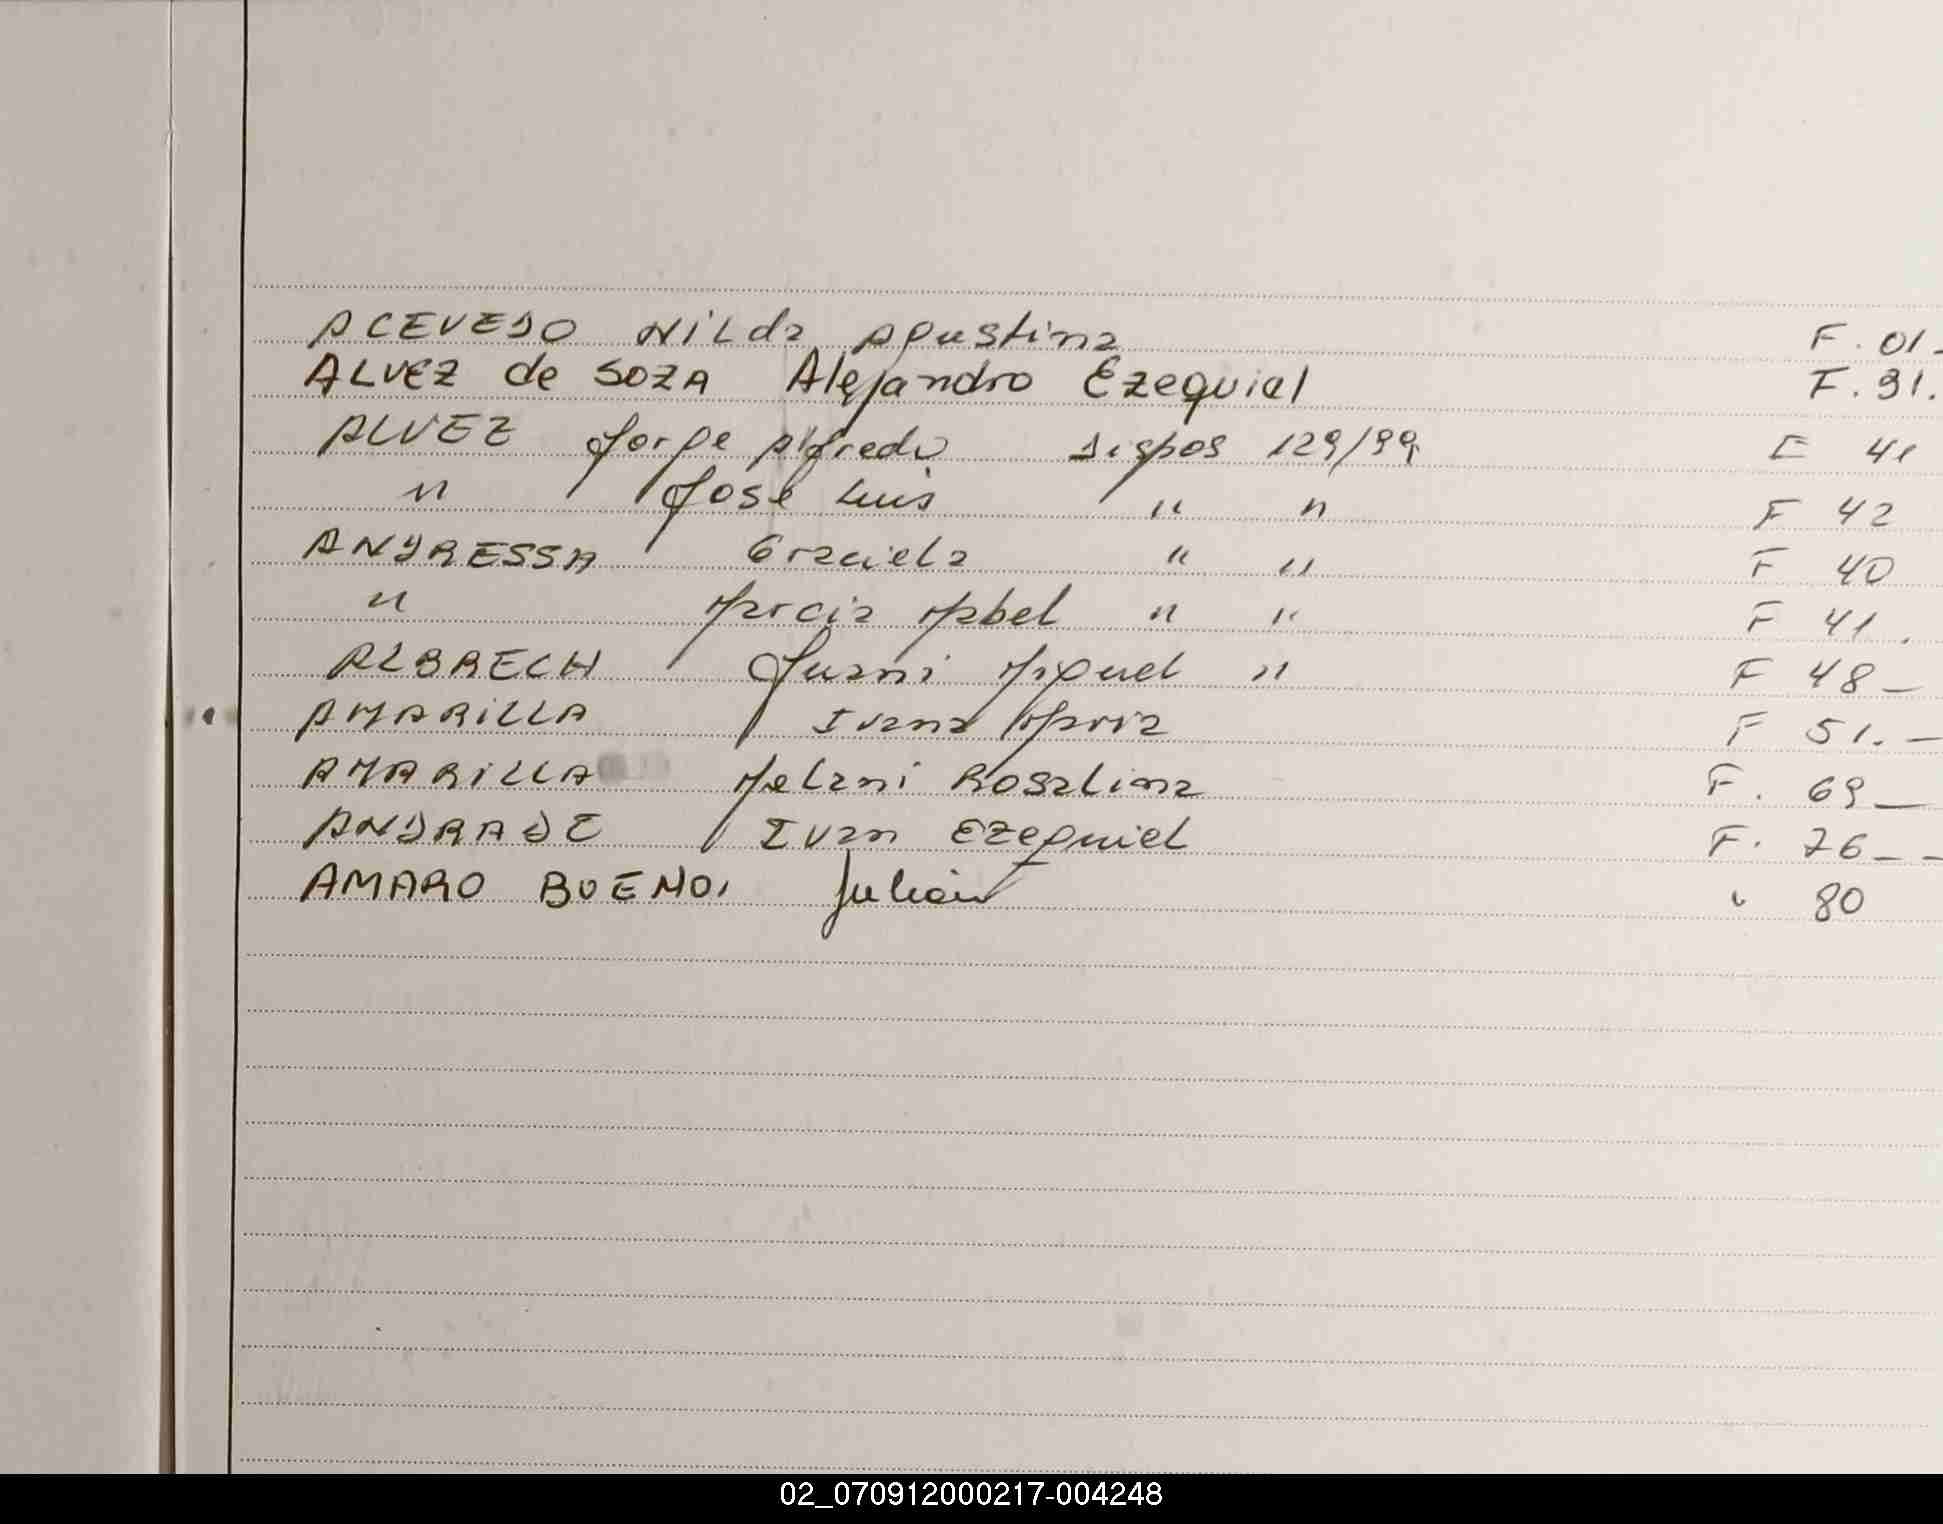 ACEVEDO Nilda Agustina F. 01_
ALVEZ de SOZA Alejandro Ezequiel F. 31.
ALVEZ Jorge Alfredo Dispos 129/99 F 41
" José Luis " " F 42
ANDRESSA Graciela " " F 40
" Marcia Mabel " " F 41.
ALBRECH Juani Miguel " F 48_
AMARILLA Ivana Maria F 51._
AMARILLA Melani Rosalina F. 69_
ANDRADE Ivan Ezequiel F. 76_ _
AMARO BUENO, Julián " 80
02_070912000217-004248